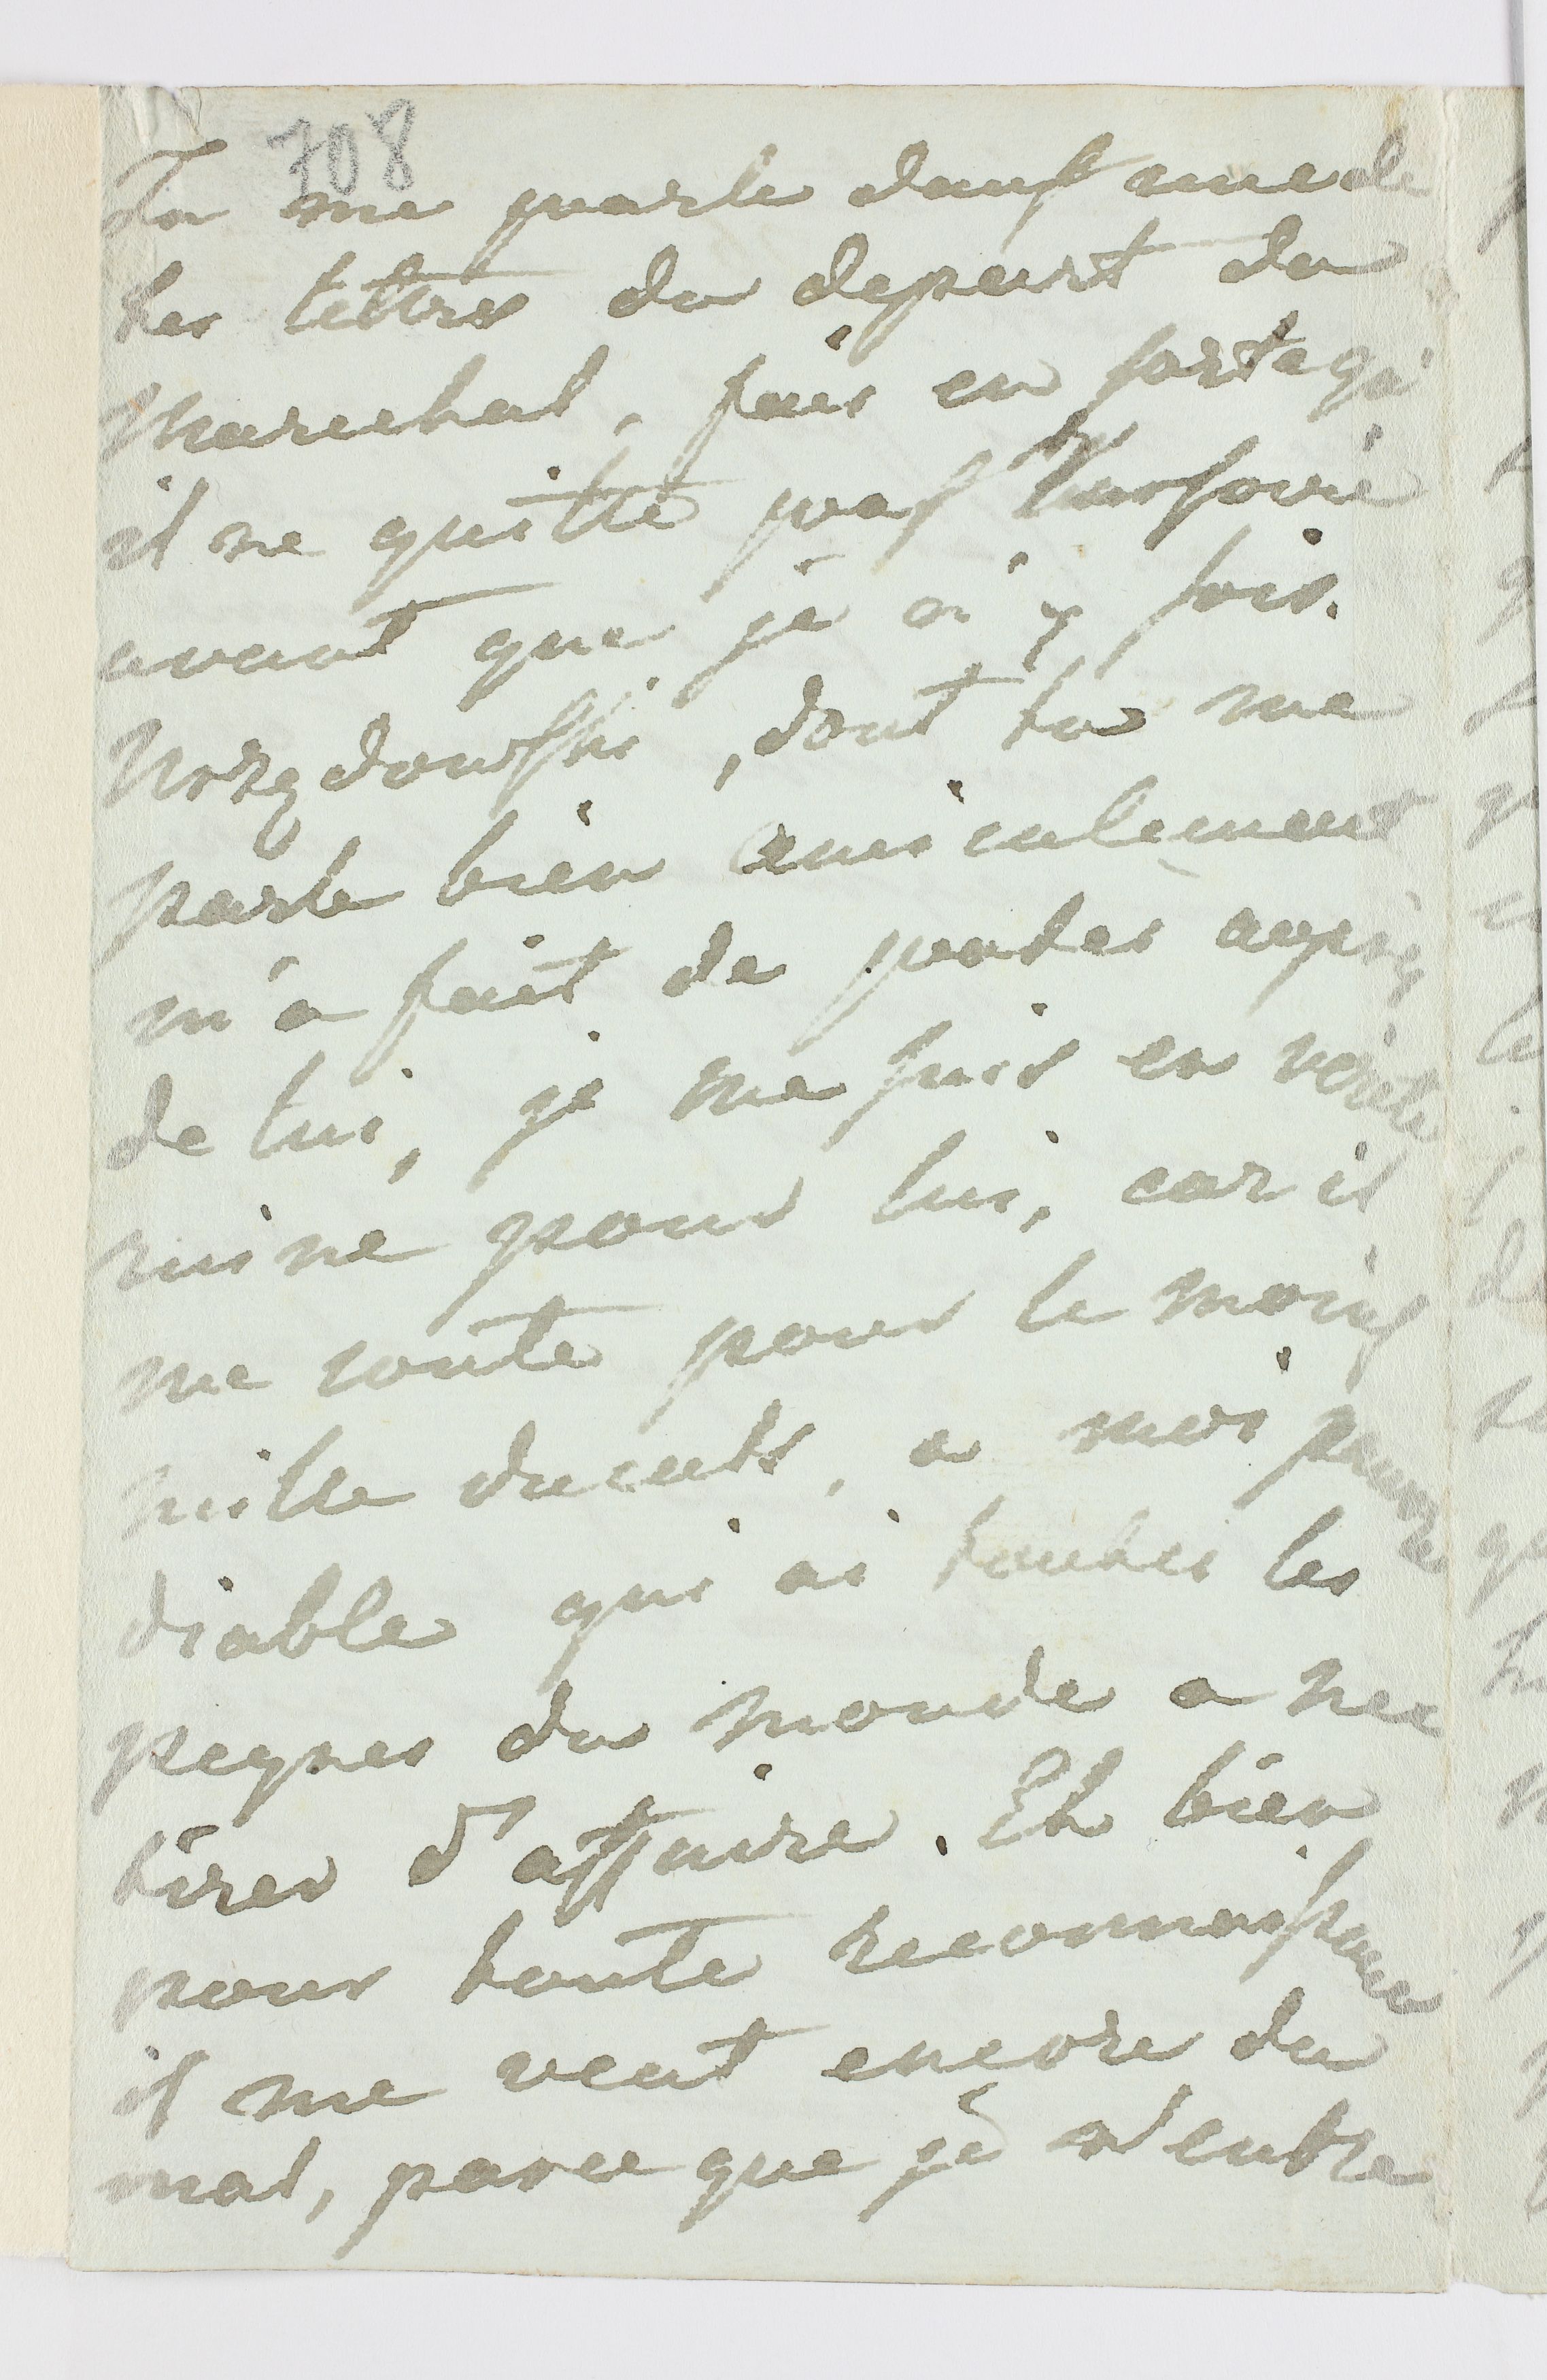 708
Tu me parle dans une de
tes lettres du depart du
Marechal, fais en sorte qu'
il ne quitte pas Varsovie
avant que je n'y sois.
dont tu me
parle bien amicalement
m'a fait de pates apres
de lui, je me suis en verité
ruiné pour lui, car il
me coute pour le moins
mille ducats, a moi pauvre
diable qui ai toutes les
peynes du monde a me
tirer d'affaire. Eh bien
pour toute reconnoissance
il me veut encore du
mal, parce que je n'entre